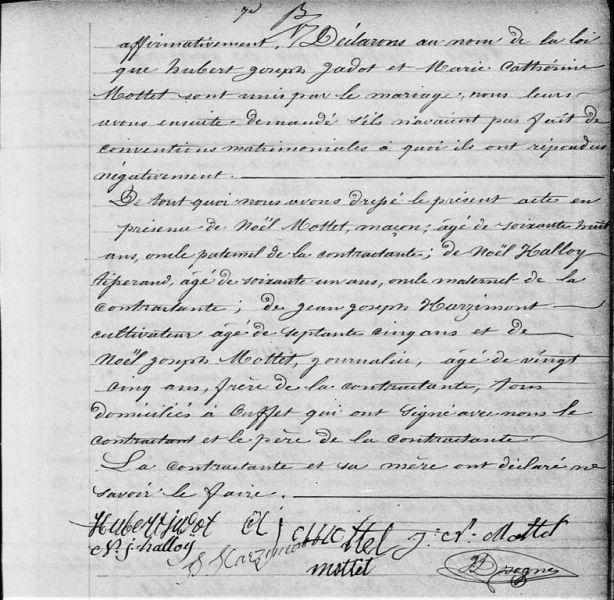 affirmativement, Déclarons au nom de la loi
que hubert joseph Jadot et Marie Cathérine
Mottet sont unis par le mariage, nous leurs
avons ensuite demandé s'ils n'avaient pas fait de
conventions matrimoniales à quoi ils ont répondus
négativement.
De tout quoi nous avons dressé le présent acte en
présence de Noël Mottet, maçon, âgé de soixante huit
ans, oncle paternel de la contractante; de Noël Halloy
tiserand, âgé de soixante un ans, oncle maternel de la
contractante; de jean joseph Harzimont
cultivateur âgé de septante cinq ans et de
Noël joseph Mottet, journalier, âgé de vingt
cinq ans, frère de la contractante, tous
domiciliés à Ouffet qui ont signé avec nous le
contractant et le père de la contractante
La contractante et sa mère ont déclaré ne
savoir le faire.
Hubert jadot Mottel J. N. Mottet
N. j. halloy Harzimont mottet